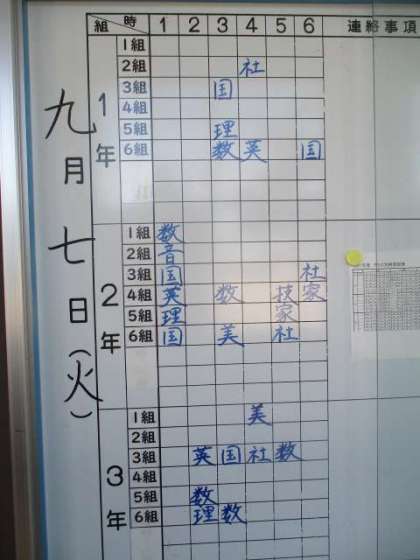 組 時 1 2 3 4 5 6 連絡事項
九月七日(火)
1年
1組
2組 社
3組 国
4組
5組 理
6組 数 英 国
2年
1組 数
2組 音
3組 国 社
4組 英 数 技 家
5組 理 家
6組 国 美 社
3年
1組 美
2組
3組 英 国 社 数
4組
5組 数
6組 理 数